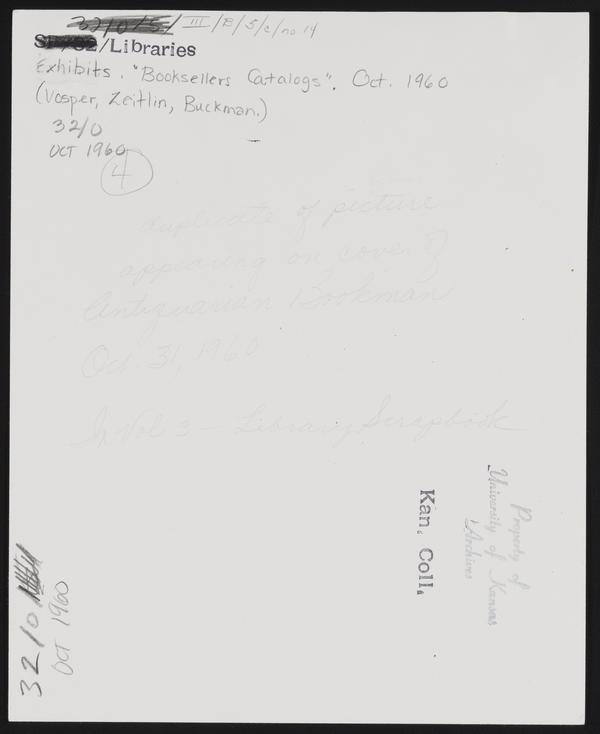 32/0/5/ III/B/5/c/no 14
/Libraries
Exhibits. "Booksellers Catalogs". Oct. 1960
(Vosper, Zeitlin, Buckman.)
32/0
OCT 1960
4
duplicate of picture
appearing on cover of
Antiquarian Bookman
Oct. 31, 1960
In Vol 3 – Library Scrapbook
Kan. Coll.
Property of
University of Kansas
Archives
32/0
OCT 1960